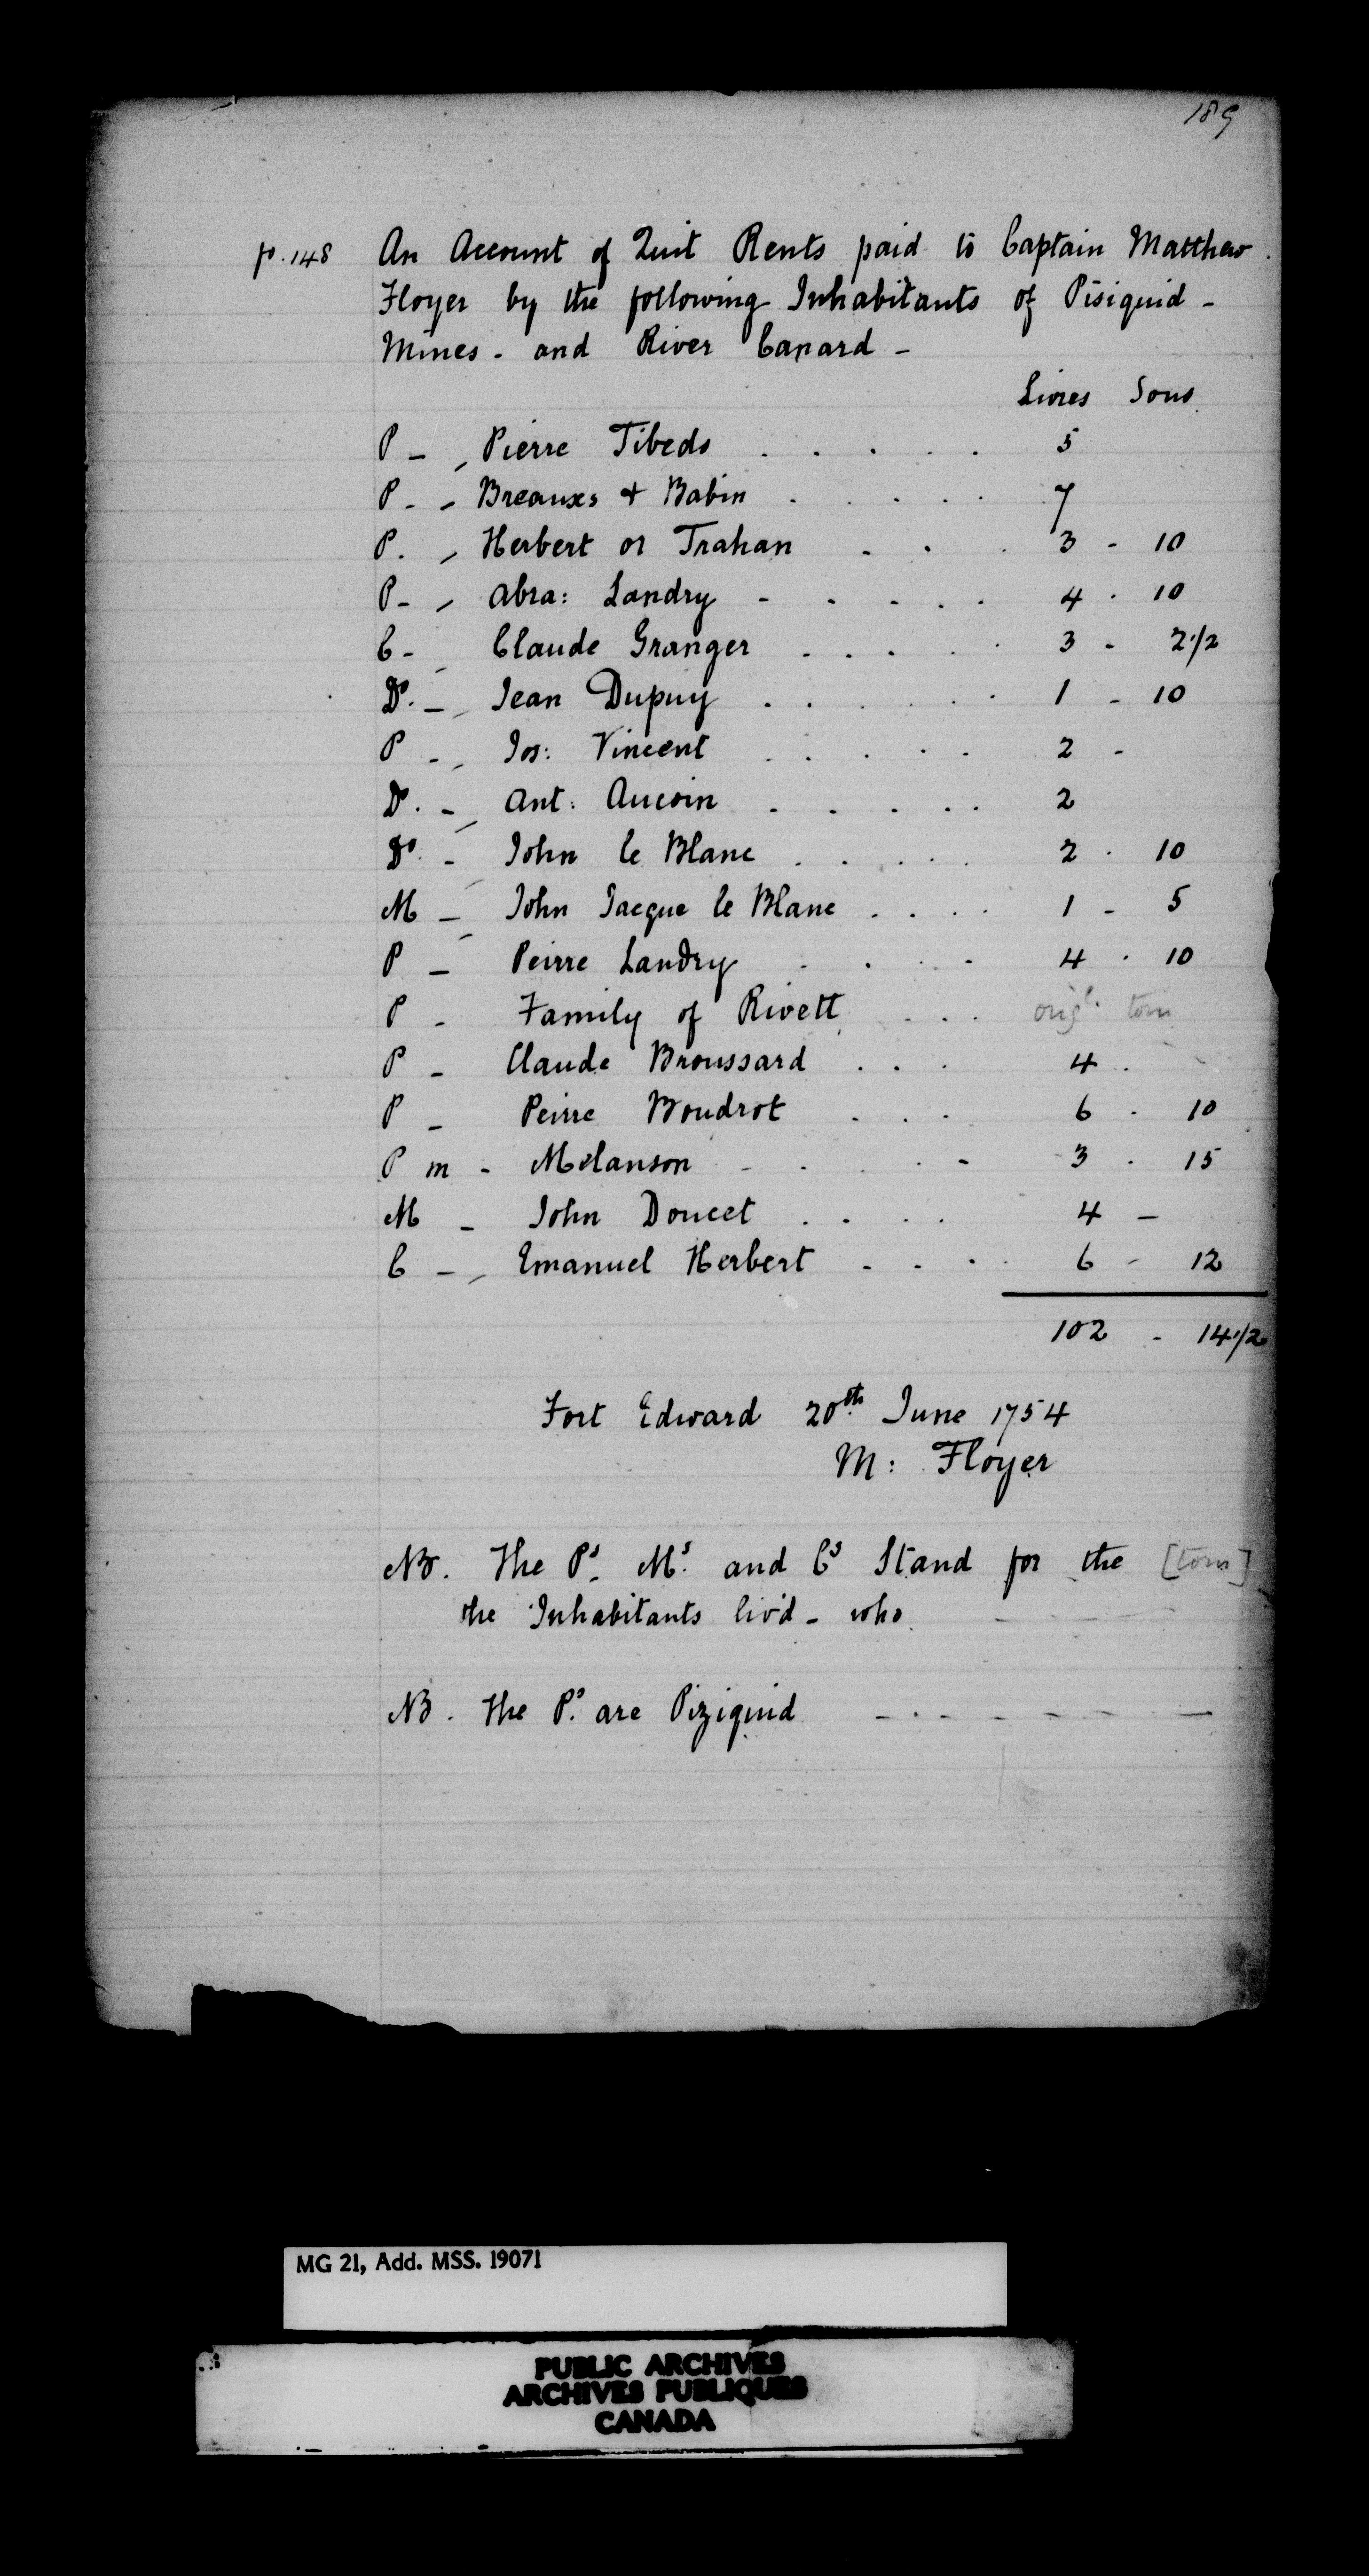 189
p. 148 An Account of Quit Rents paid to Captain Matthew
Floyer by the following Inhabitants of Pisiquid -
Mines - and River Canard -
Livres Sous
P - Pierre Tibeds . . . . . 5
P - Breauxs & Babin . . . . . 7
P. Herbert or Trahan . . . 3 - 10
P - Abra: Landry - - - - - 4 - 10
C - Claude Granger . . . . . 3 - 2 1/2
Do. - Jean Dupuy . . . . . . 1 - 10
P - Jos: Vincent . . . . . 2 -
Do. - Ant: Aucoin . . . . . 2
Do. - John le Blanc . . . . . 2 - 10
M - John Jacque le Blanc . . . . 1 - 5
P - Peirre Landry . . . . 4 - 10
P - Family of Rivett . . . origl. torn
P - Claude Broussard . . . 4 .
P - Peirre Boudrot . . . 6 - 10
P m - Melanson - . . . - 3 - 15
M - John Doucet . . . . 4 -
C - Emanuel Herbert . . . . 6 - 12
102 - 14 1/2
Fort Edward 20th June 1754
M: Floyer
NB. The Ps. Ms. and Cs Stand for the [torn]
the Inhabitants liv'd - who
NB. The Ps. are Piziquid - - - - - - -
MG 21, Add. MSS. 19071
PUBLIC ARCHIVES
ARCHIVES PUBLIQUES
CANADA